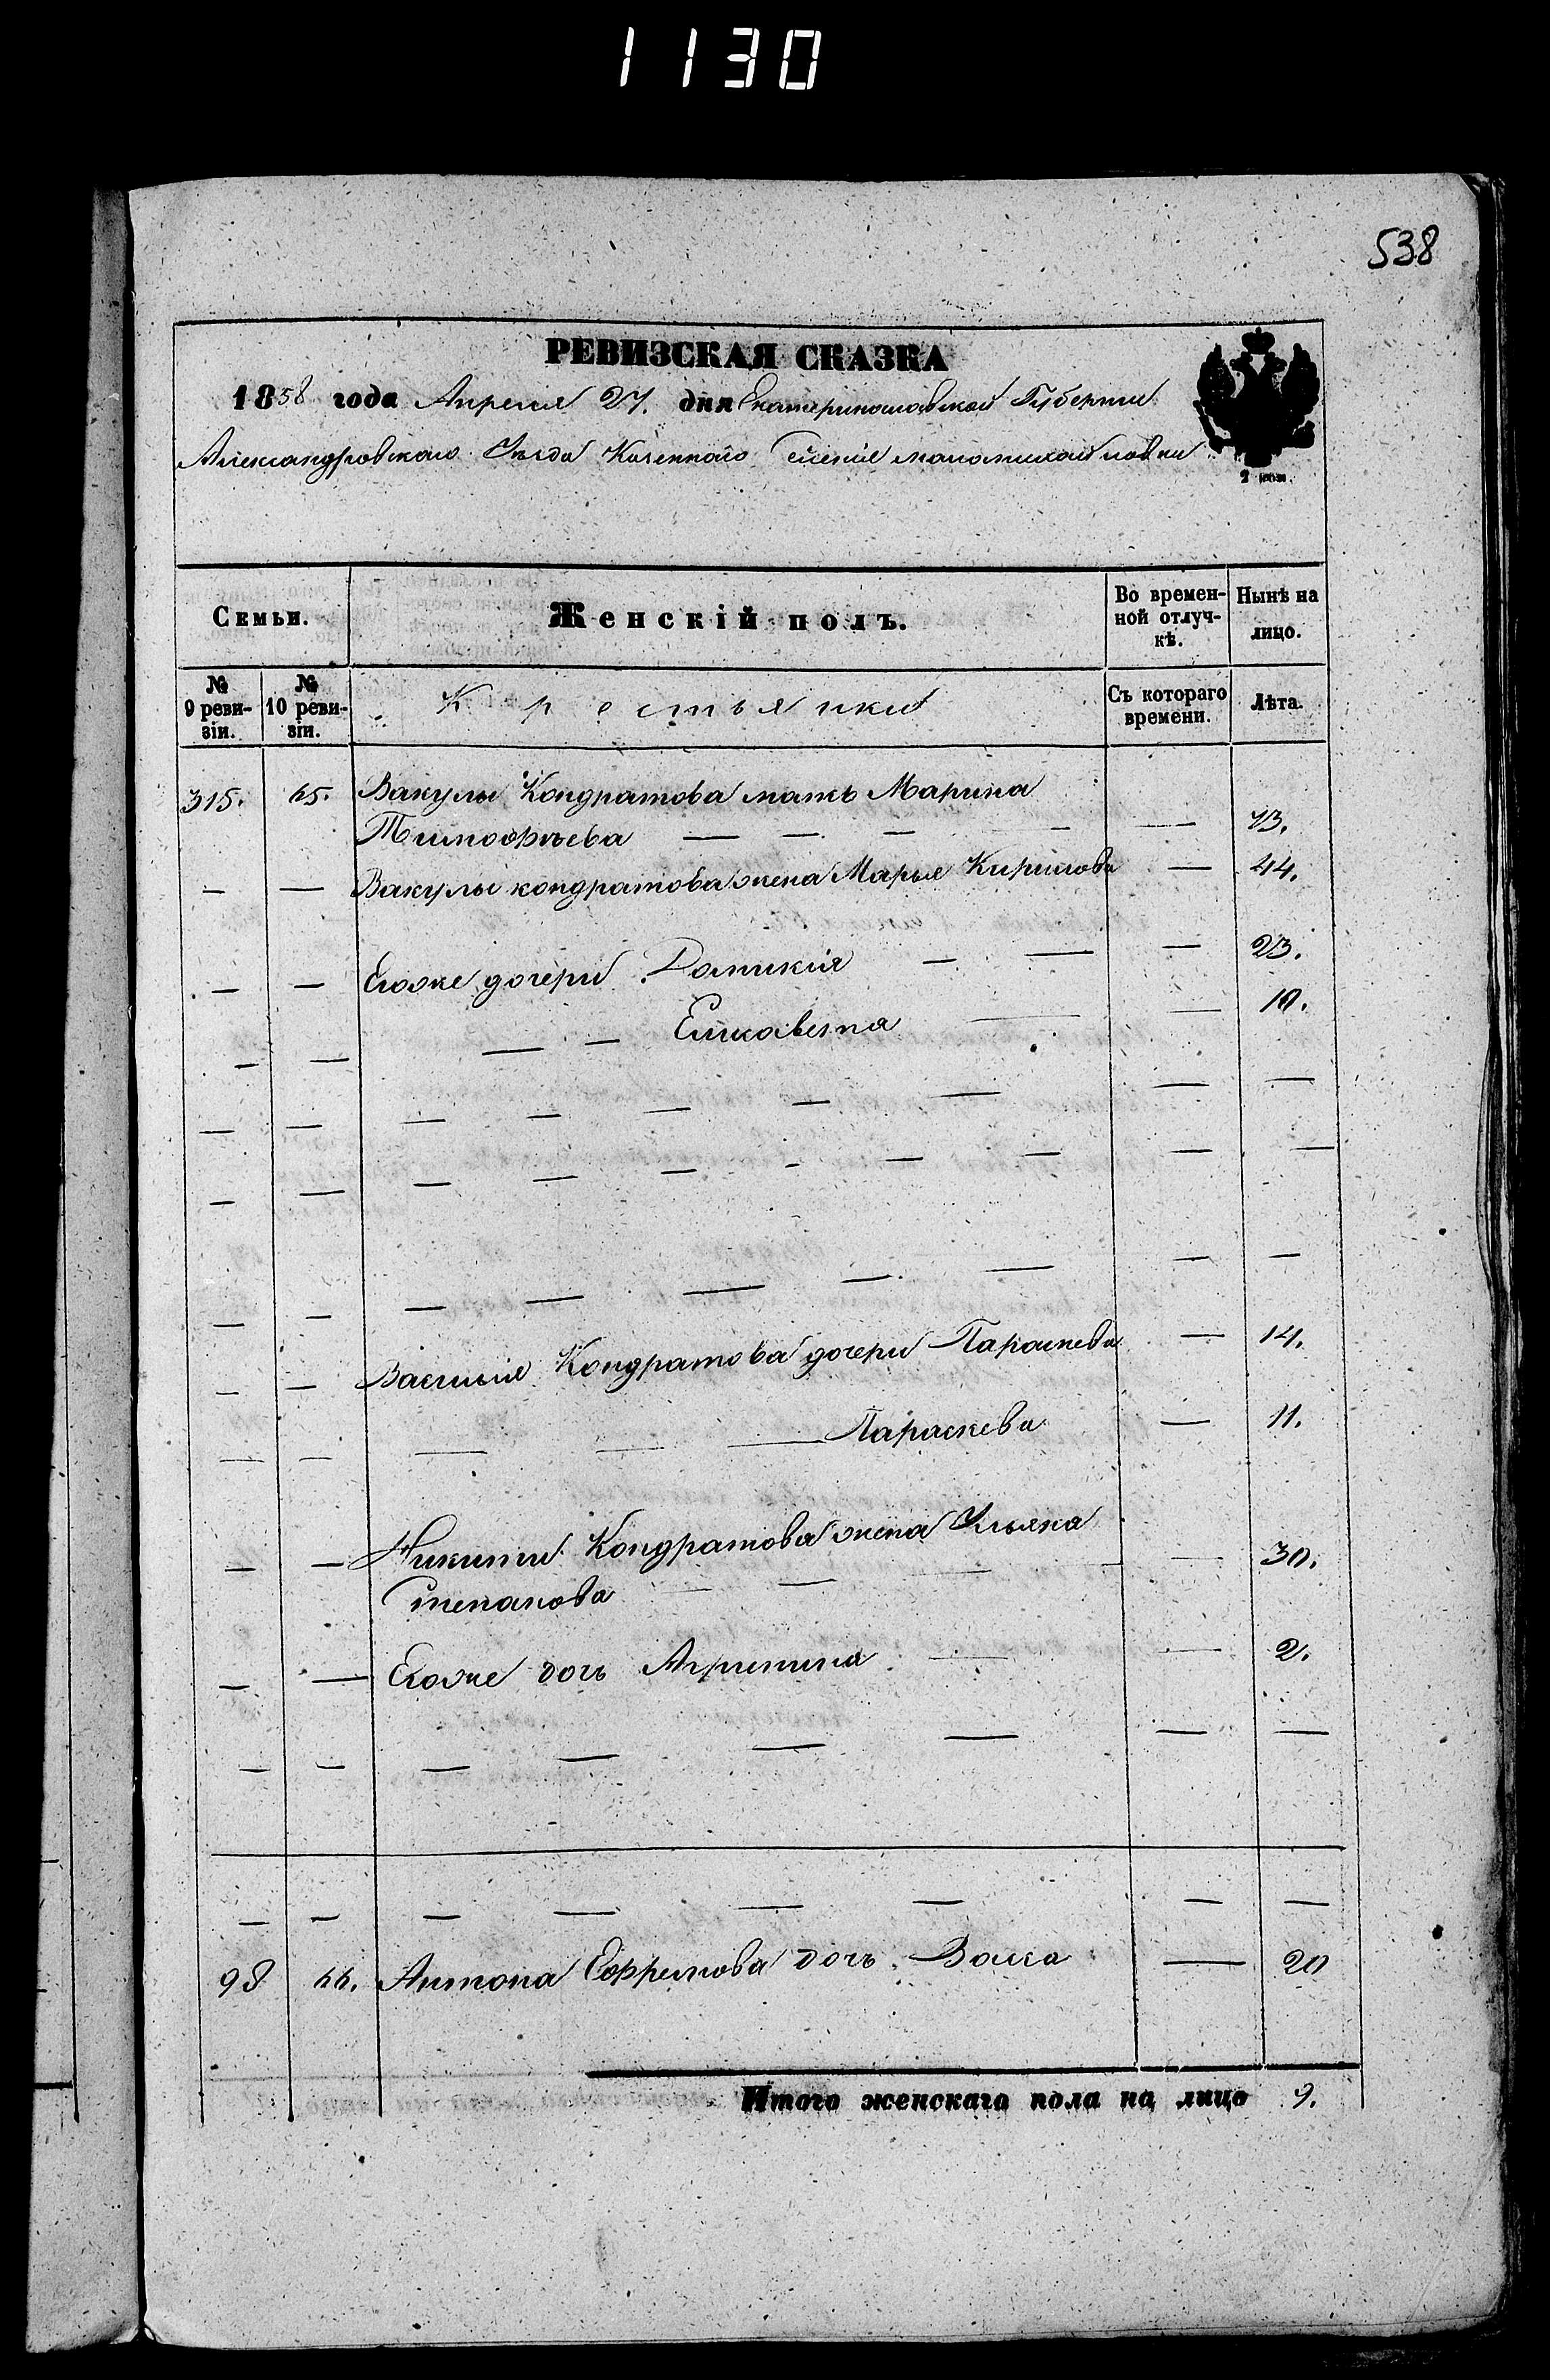 1130
538
РЕВИЗСКАЯ СКАЗКА
1858 года Апреля 27. дня Екатеринославской Губернии
Александровского Уезда Казенного Селения Маломихайловки
2 коп.
Семьи.
Женскій полъ.
Во времен-
ной отлуч-
кѣ.
Нынѣ на
лицо.
№
9 реви-
зіи.
№
10 реви-
зіи.
Крестьянки
Съ котораго
времени.
Лѣта.
315. 65. Вакулы Кондратова мать Марина
Тимофѣева — — — — — 73.
— — Вакулы кондратова жена Марья Кирилова — 44.
— — Егоже дочери Домникія — — — 23.
— — — — Елисавета — — 10.
— — — — — — — — —
— — — — — — — — — —
— — — — — — — — —
— — Василия Кондратова дочери Параскева — 14.
— — — — — Параскева — 11.
— — Никиты Кондратова жена Ульяна — 30.
Степанова — — — —
— — Егоже дочь Агрипина — — 2.
— — — — — — — —
— — — — — — — —
98 66. Антона Ефремова дочь — 20
Итого женскаго пола на лицо 9.